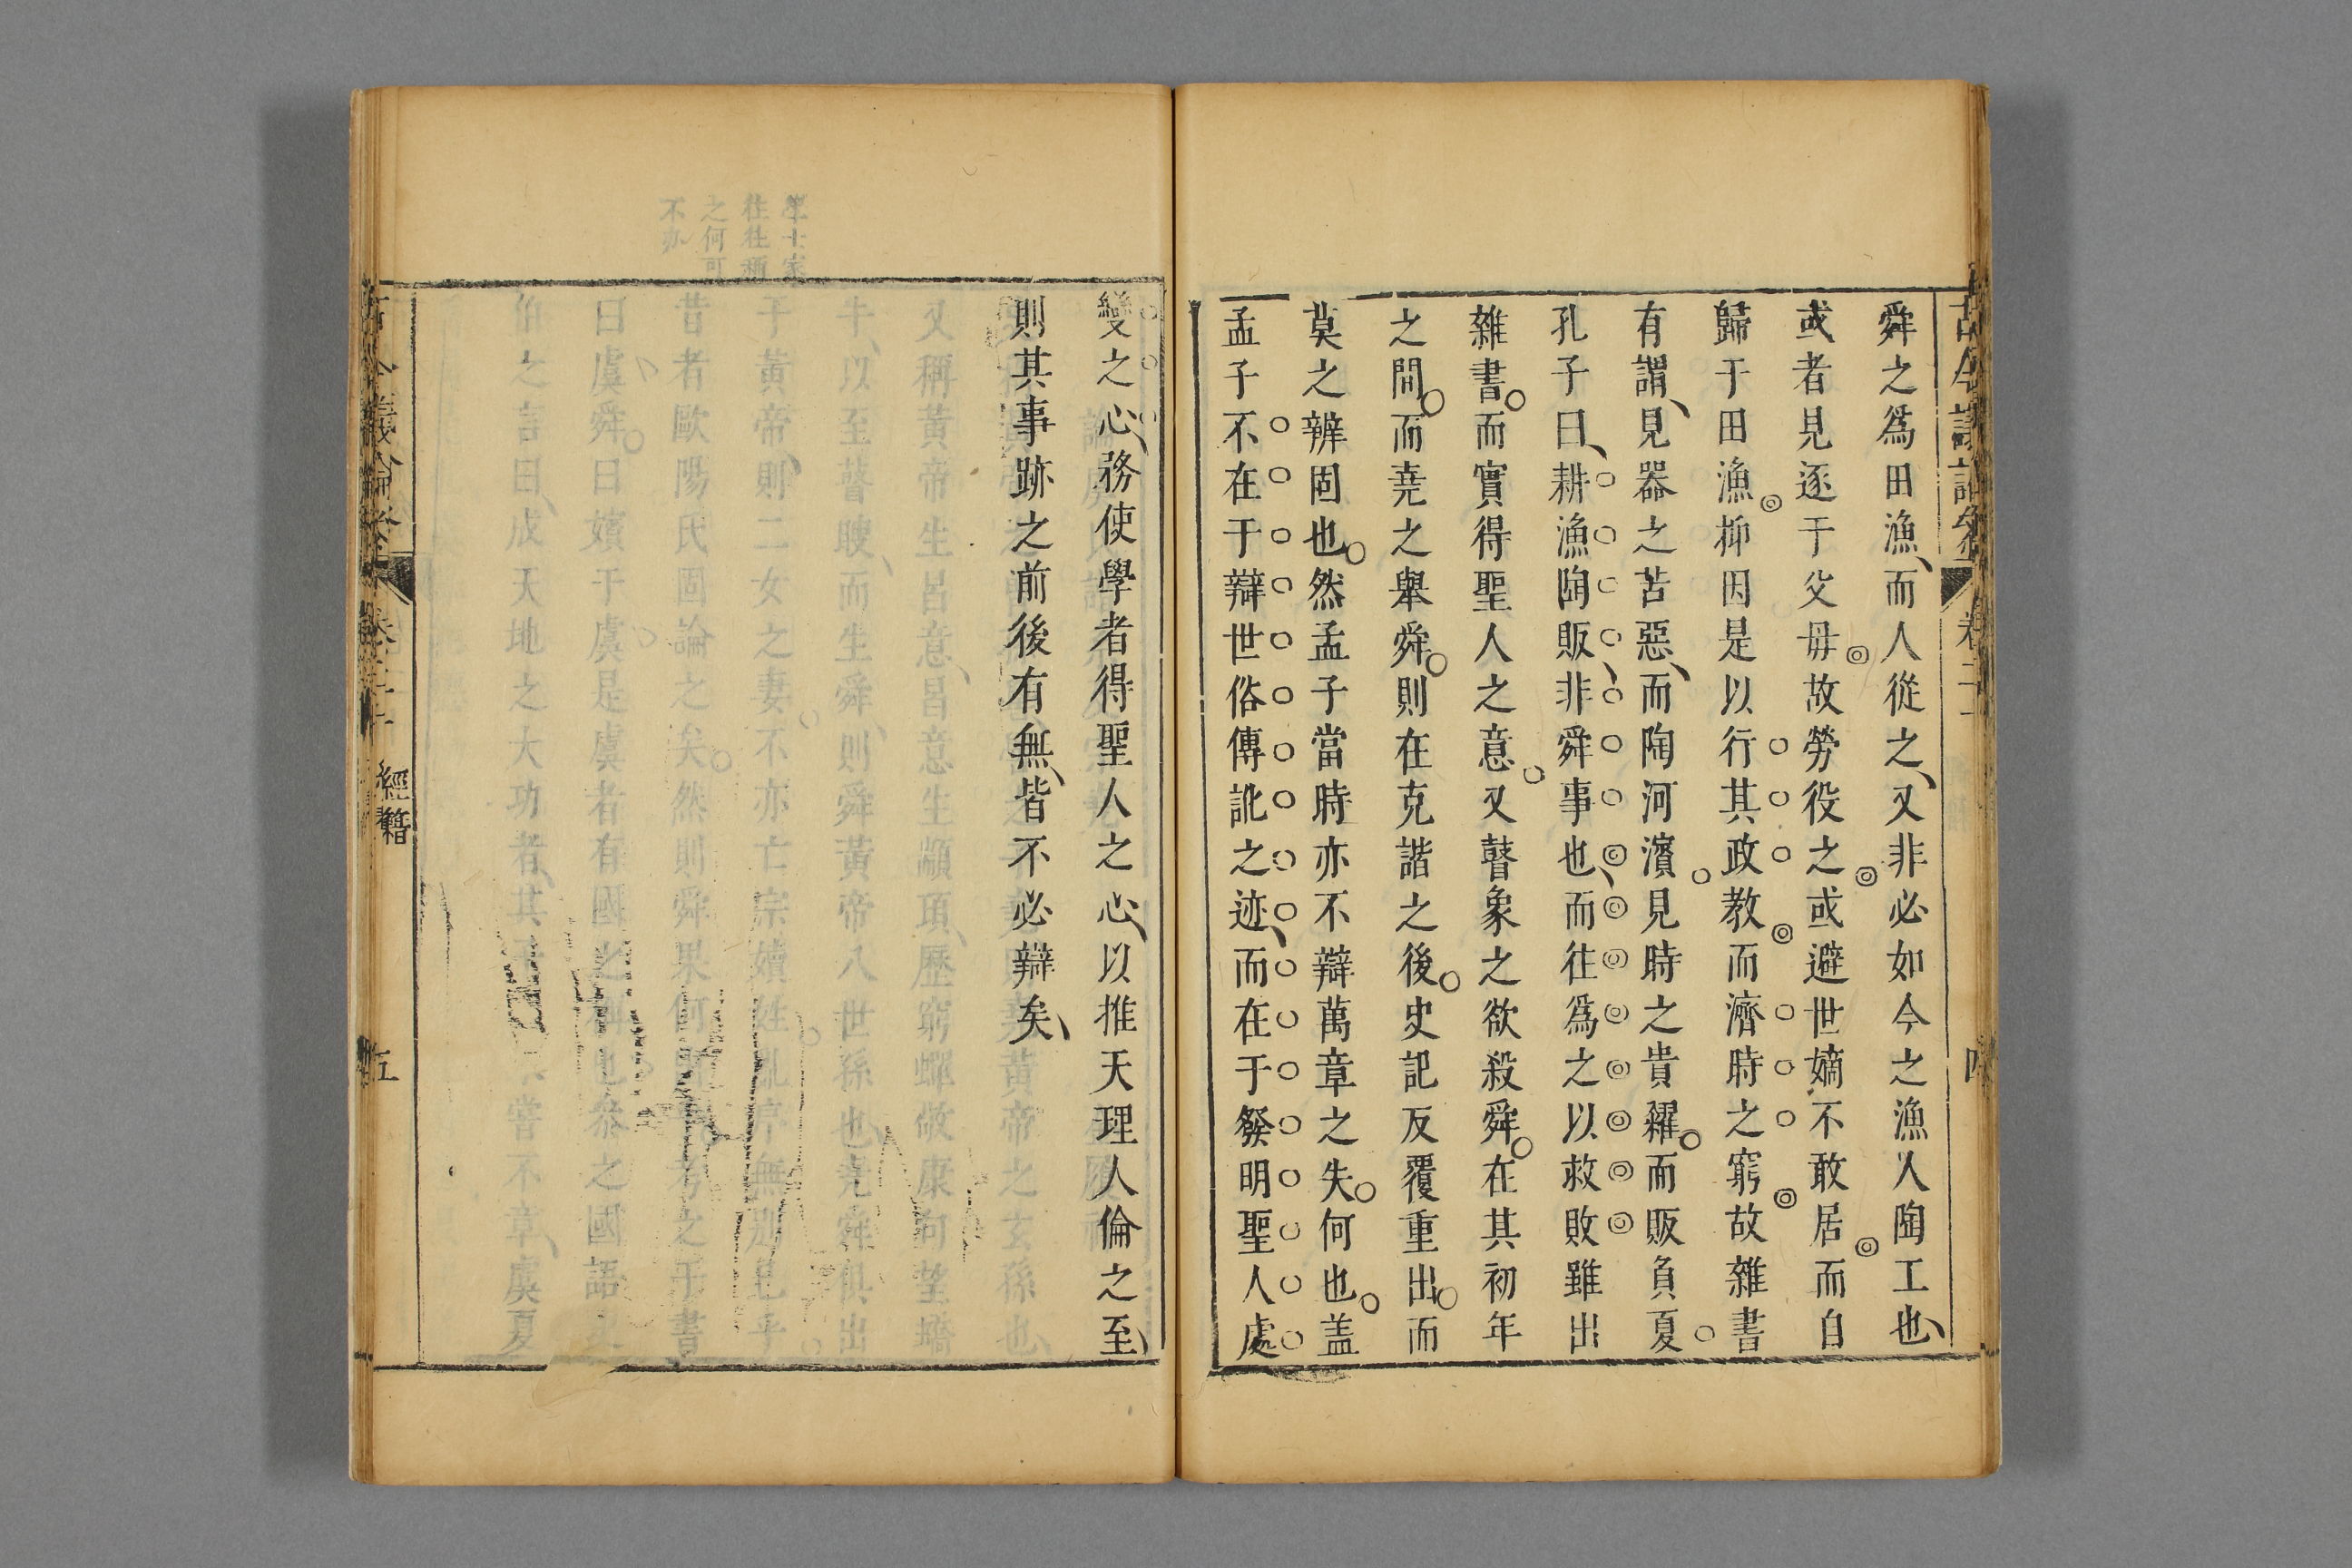 古今議論參
卷二十
四
舜之爲田漁而人從之又非必如今之漁人陶工也
或者見逐于父毋故勞役之或避世嫡不敢居而自
歸于田漁抑因是以行其政教而濟時之窮故雜書
有謂見器之苦惡而陶河濱見時之貴糴而販負夏
孔子曰耕漁陶販非舜事也而往爲之以救敗雖出
雜書而實得聖人之意又瞽象之欲殺舜在其初年
之間而堯之舉舜則在克諧之後史記反覆重出而
莫之辨固也然孟子當時亦不辯萬章之失何也盖
孟子不在于辯世俗傳訛之迹而在于發明聖人處
變之心務使學者得聖人之心以推天理人倫之至
則其事跡之前後有無皆不必辯矣
古今議論參
卷二十
經籍
五